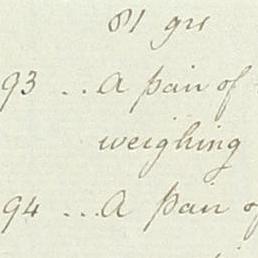 81 grs
93 ... A pair of
weighing
94 ... A pair of